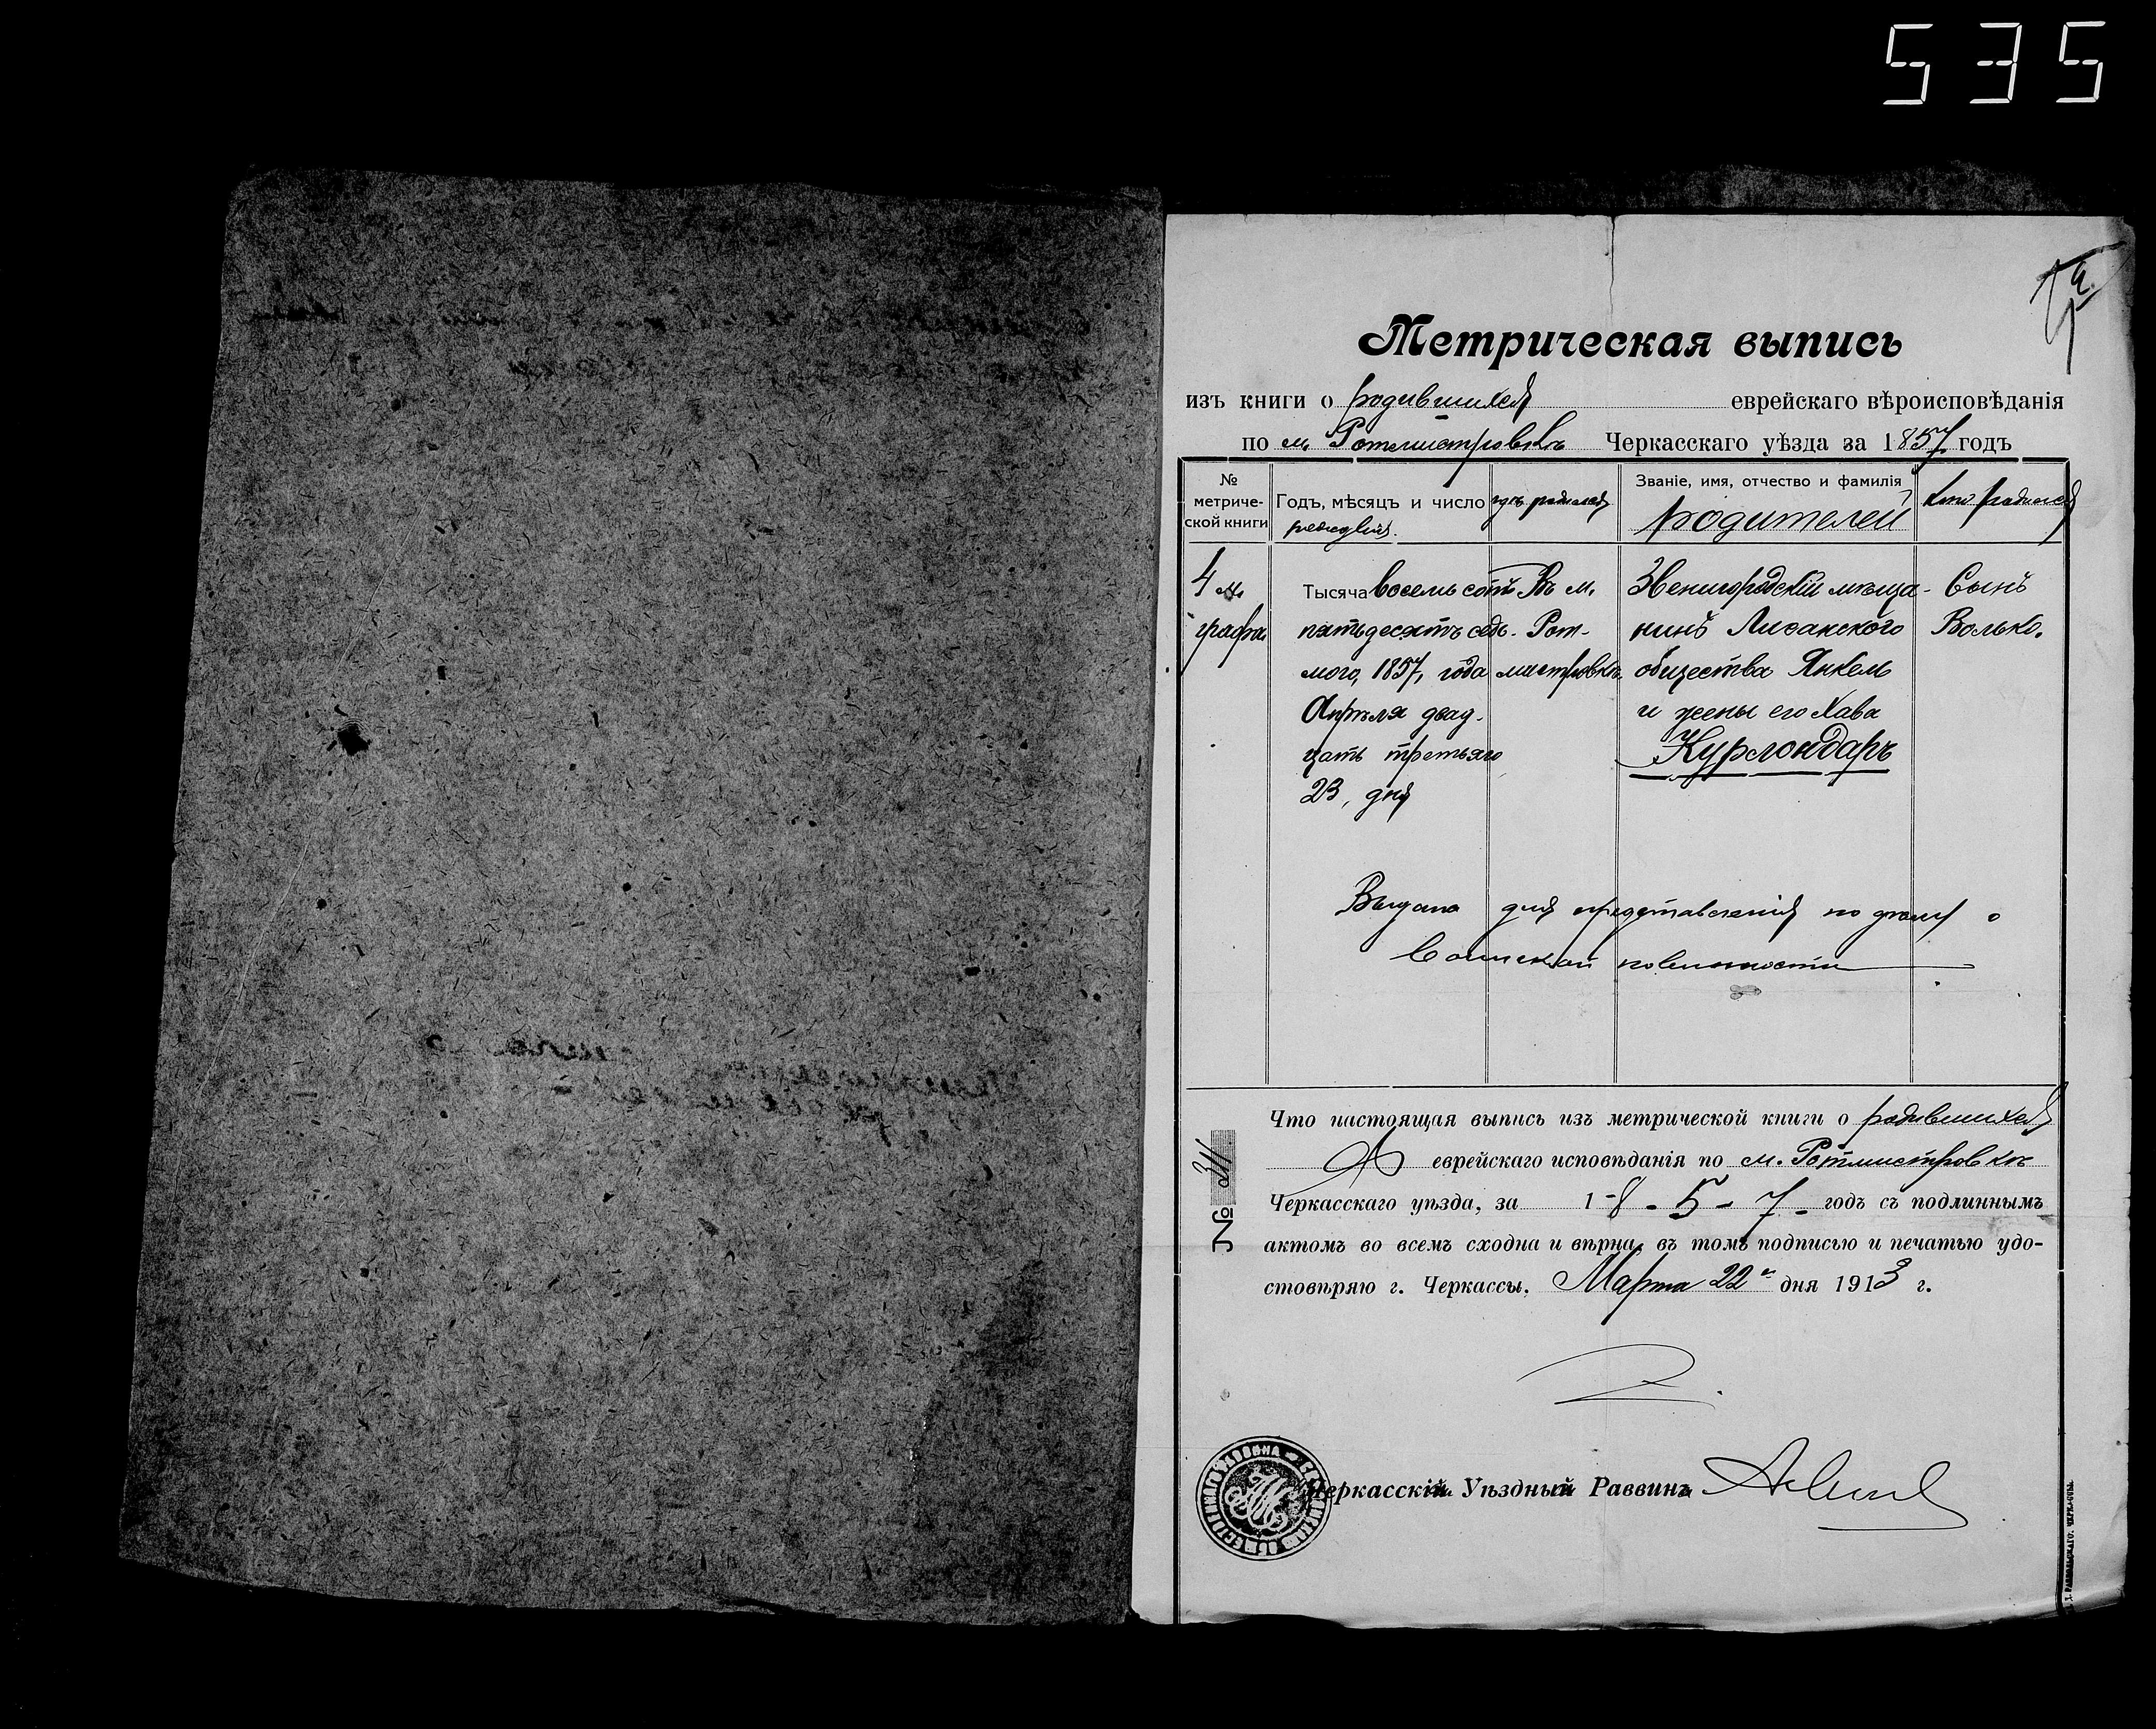 535
Метрическая выпись
изъ книги о родившихся еврейскаго вѣроисповѣданія
по м. Ротмистровкѣ Черкасскаго уѣзда за 1857 годъ
№ метриче-ской книги
Годъ, мѣсяцъ и число рожденія.
гдѣ родился
Званіе, имя, отчество и фамилія родителей
Кто родился
4 м.
графа.
Тысяча восемь сотъ
пятьдесятъ седь-
мого, 1857, года
Апрѣля двад-
цать третьяго
23, дня
Въ м.
Рот-
мистровкѣ
Звенигородскій мѣща-
нинъ Лисанского
общества Янкель
и жены его Хава
Курлондаръ
Сынъ
Волько.
Выдана для представленія по дѣлу о
воинской повинности
№ 311
Что настоящая выпись изъ метрической книги о родившихся
еврейскаго исповѣданія по м. Ротмистровкѣ
Черкасскаго уѣзда, за 1-8-5-7- годъ съ подлиннымъ
актомъ во всемъ сходна и вѣрна, въ томъ подписью и печатью удо-
стовѣряю г. Черкассы. Марта 22 дня 1913 г.
Черкасскій Уѣздный Раввинъ